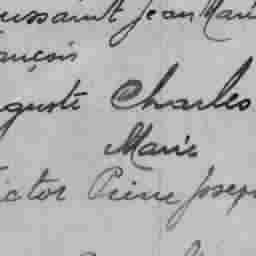 oussaint Jean Marie
ançois
uguste Charles
Marie
ictor Pierre Joseph